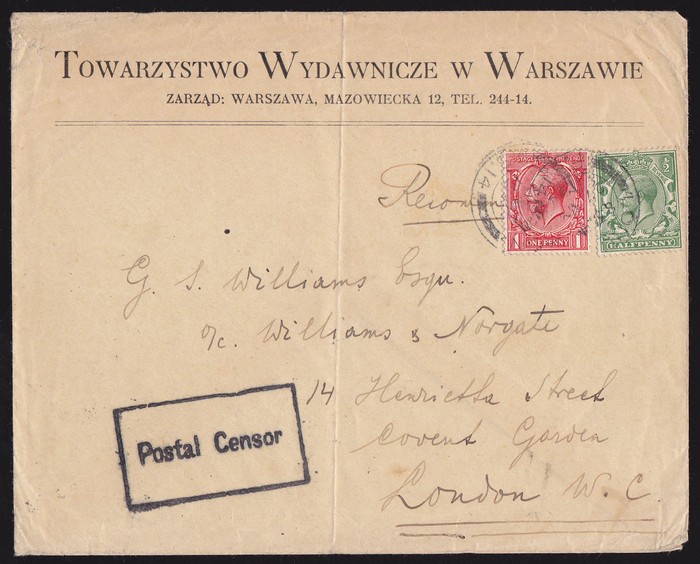 TOWARZYSTWO WYDAWNICZE W WARSZAWIE
ZARZĄD: WARSZAWA, MAZOWIECKA 12, TEL. 244-14.
POSTAGE REVENUE
ONE PENNY
1 1
½
HALFPENNY
14
G. S. Williams Esqu.
o/c. Williams & Norgate
14 Henrietta Street
Covent Garden
London W. C.
Postal Censor